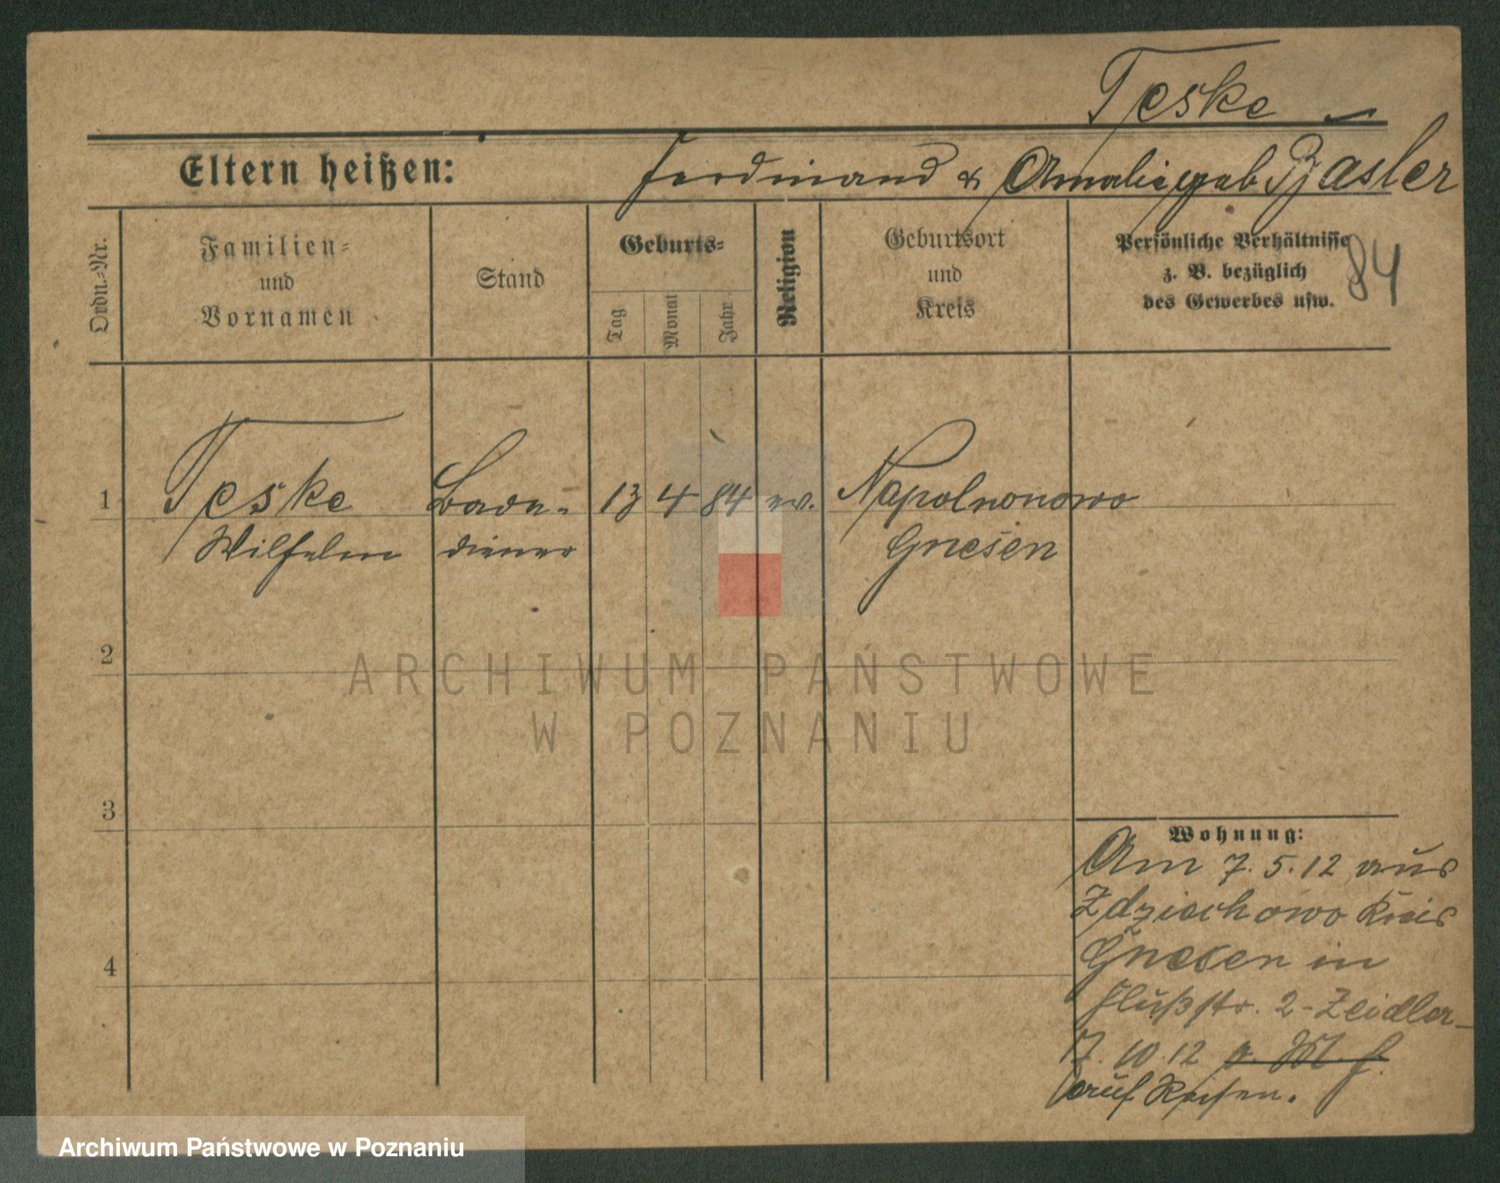 Teske
Eltern heißen: Ferdinand & Amalie geb Basler
Ordn.-Nr.
Familien-
und
Vornamen
Stand
Geburts-
Tag
Monat
Jahr
Religion
Geburtsort
und
Kreis
Persönliche Verhältnisse
z. B. bezüglich
des Gewerbes usw.
84
1 Teske Bade- 13 4 84 ev. Napoleonowo
Wilhelm diener Gnesen
2
3
4
Wohnung:
Am 7. 5. 12 aus
Zdziechowo Kreis
Gnesen in
Flußstr. 2 - Zeidler -
10. 12
auf Reisen.
ARCHIWUM PAŃSTWOWE
W POZNANIU
Archiwum Państwowe w Poznaniu